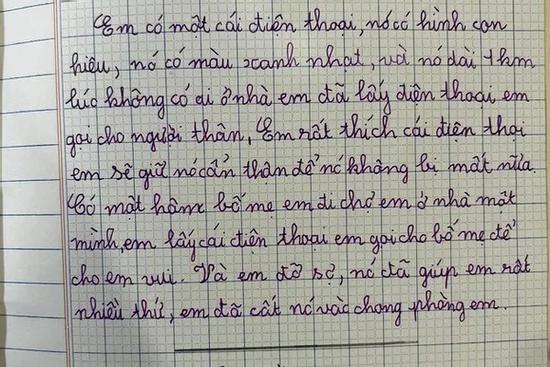 Em có một cái điện thoại, nó có hình con
hiêu, nó có màu xanh nhạt, và nó dài 1km
lúc không có ai ở nhà em đã lấy điện thoại em
gọi cho người thân, Em rất thích cái điện thọi
em sẽ giữ nó cẩn thận để nó không bị mất nữa.
Có một hôm bố mẹ em đi chợ em ở nhà một
mình, em lấy cái điện thoại em gọi cho bố mẹ để
cho em vui. Và em đỡ sợ, nó đã giúp em rất
nhiều thứ, em đã cất nó vào chong phòng em.